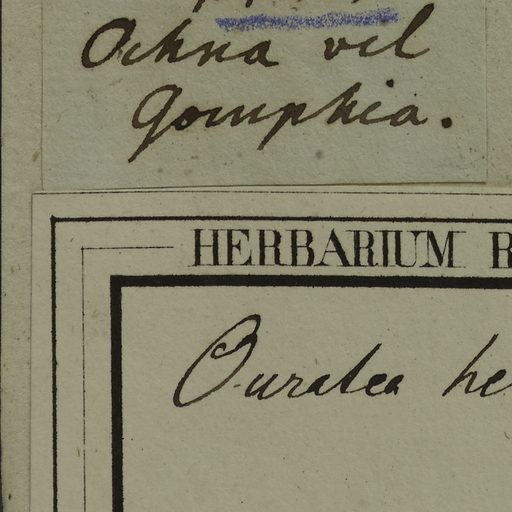 Ochna vel
Gomphia.
HERBARIUM
Ouratea he